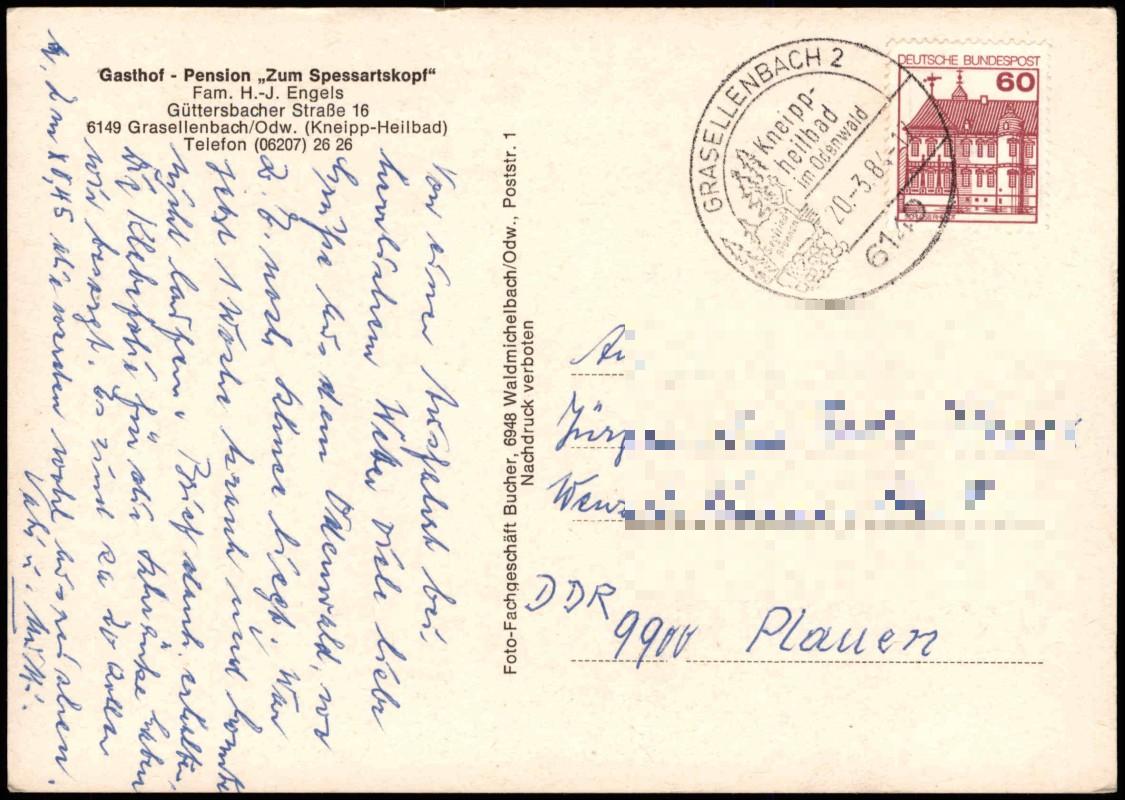 Gasthof - Pension „Zum Spessartskopf“
Fam. H.-J. Engels
Güttersbacher Straße 16
6149 Grasellenbach/Odw. (Kneipp-Heilbad)
Telefon (06207) 26 26
Von einer Ausfahrt bei
herrlichem Wetter viele liebe
Grüße aus dem Odenwald, wo
z. T. noch Schnee liegt. War
jetzt 1 Woche krank und konnte
nicht laufen. Brief dank. erhalten
Die Klebefolie für die Schränke haben
wir besorgt. Es sind 2 Rollen
4,5 die werden wohl ausreichen.
Vati u. Mutti.
Foto-Fachgeschäft Bucher, 6948 Waldmichelbach/Odw., Poststr. 1
Nachdruck verboten
GRASELLENBACH 2
Kneipp-
heilbad
im Odenwald
20.-3.8
6149
DEUTSCHE BUNDESPOST
60
An
DDR
9900 Plauen